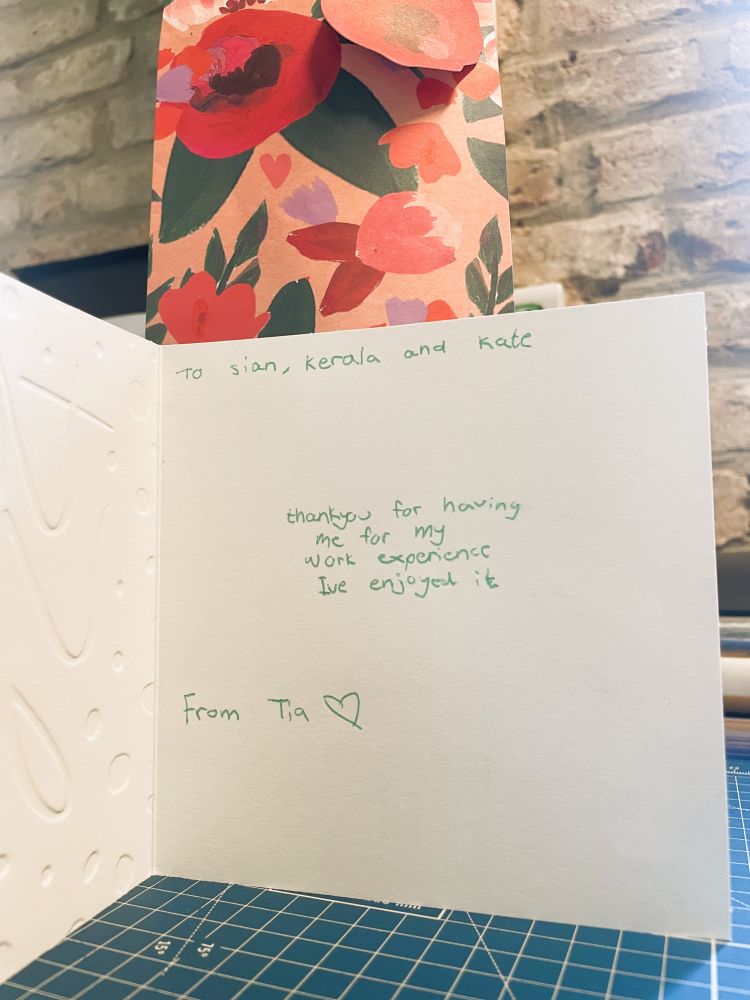 To sian, kerala and kate
thankyou for having
me for my
work experience
Ive enjoyed it
From Tia ♡
15°
15°